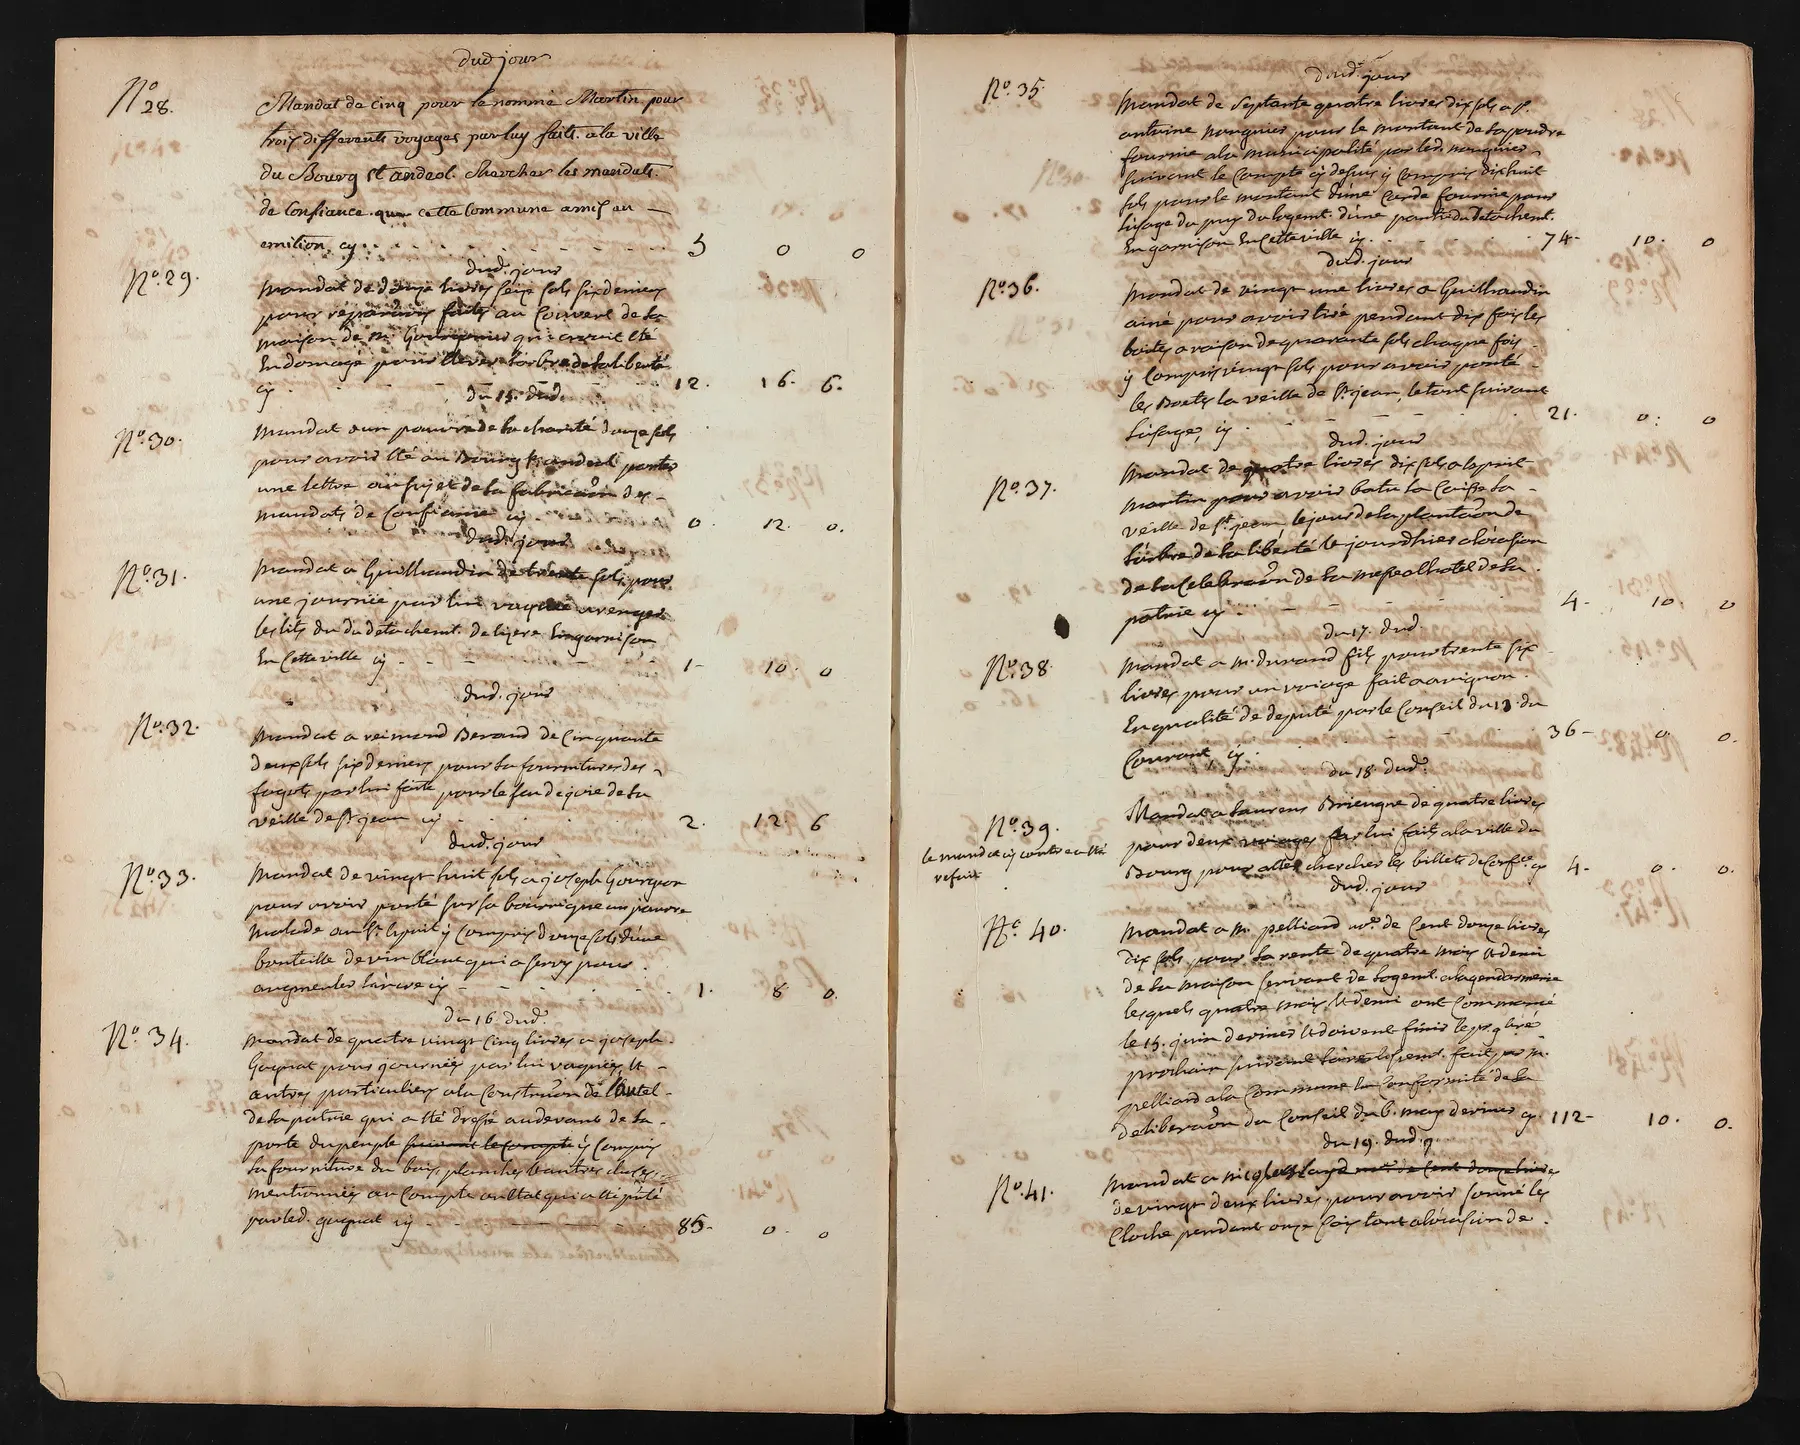 dud jour
No 28.
Mandat de cinq pour le nommé Martin pour
trois differents voyages par luy faits a la ville
du Bourg st andeol. Chercher les mandats
de Confiance que cette Commune a mis en
emition cy 5 0 0
dud. jour
No. 29.
Mandat de douze livres seize sols six deniers
pour reparations faites au Couvert de la
maison de mr. qui avoit été
Endomagé pour élever l'arbre de la liberté
cy 12. 16. 6.
du 15. dud.
No. 30.
Mandat a un pauvre de la charité douze sols
pour avoir été au Bourg st andeol porter
une lettre au sujet de la fabricaon des
mandats de Confiance cy 0. 12. 0.
dud. jour
No. 31.
Mandat a Guilhaudin de trente sols pour
une journée par lui vaquée a ranger
les lits du du detachemt. de lizere En garnison
En Cette ville cy 1 10 0
dud. jour
No. 32.
Mandat a reimond Beraud de Cinquante
deux sols six deniers pour la fourniture des
fagots par lui faite pour le feu de joie de la
veille de st jean cy 2. 12 6
dud. jour
No. 33.
Mandat de vingt huit sols a joseph Gourjon
pour avoir porté sur sa bourrique un pauvre
malade au st. esprit y Compris douze sols d'une
bouteille de vin blanc qui a servy pour
augmenter l'ancre cy 1. 8 0.
du 16. dud.
No. 34.
Mandat de quatre vingt Cinq livres a joseph
Goignat pour journées par lui vaquées et
autres particuliers a la Construon de l'autel
de la patrie qui a été dressé au devant de la
porte du peuple suivant le Compte y Compris
la fourniture du bois, planches et autres choses
mentionnées au Compte ou Etat qui a été
par led. goignat cy 85 0 0
dud. jour
No. 35
Mandat de Septante quatre livres dix sols a sr.
antoine nougnier pour le montant de la poudre
fournie a la municipalité par led. nougnier
suivant le Compte cy dessus y Compris dix huit
sols pour le montant d'une Corde fournie pour
l'usage du puy du logemt. d'une partie du detachemt.
En garnison En Cette ville cy 74 10. 0
dud. jour
No. 36.
Mandat de vingt une livres a Guilhaudin
ainé pour avoir tiré pendant dix fois les
boites a raison de quarante sols chaque fois
y Compris vingt sols pour avoir porté
les Boetes la veille de st. jean, le tout suivant
l'usage, cy 21. 0. 0
dud. jour
No. 37.
Mandat de quatre livres dix sols a esprit
martin pour avoir batu la Caisse la
veille de st. jean, le jour de la plantaon de
l'arbre de la liberté le jour d'hier a l'ocasion
de la Celebraon de la messe a l'hotel de la
patrie cy 4 10. 0
du 17. dud
No. 38
Mandat a mr. durand fils pour trente six
livres pour un voiage fait a avignon
En qualité de deputé par le Conseil du 13. du
Courant, cy 36 0 0.
du 18. dud.
No. 39.
le mandat cy contre a été
refait
Mandat a Laurens Briengne de quatre livres
pour deux voiages par lui faits a la ville du
Bourg pour aller chercher les billets de Conf.ce cy 4 0. 0.
dud. jour
No. 40.
Mandat a mr. pelliard nore. de Cent douze livres
dix sols pour la rente de quatre mois et demi
de la maison servant de logemt. a la gendarmerie
lesquels quatre mois et demi ont Commencé
le 15. juin dernier et doivent finir le pr. 9bre
prochain suivant fait par mr.
pelliard a la Commune En Conformité de la
deliberaon du Conseil du 6. may dernier cy. 112 10. 0.
du 19. dud.
No. 41.
Mandat a nicolas
de vingt deux livres, pour avoir sonné les
Cloche pendant onze fois tant a l'ocasion de